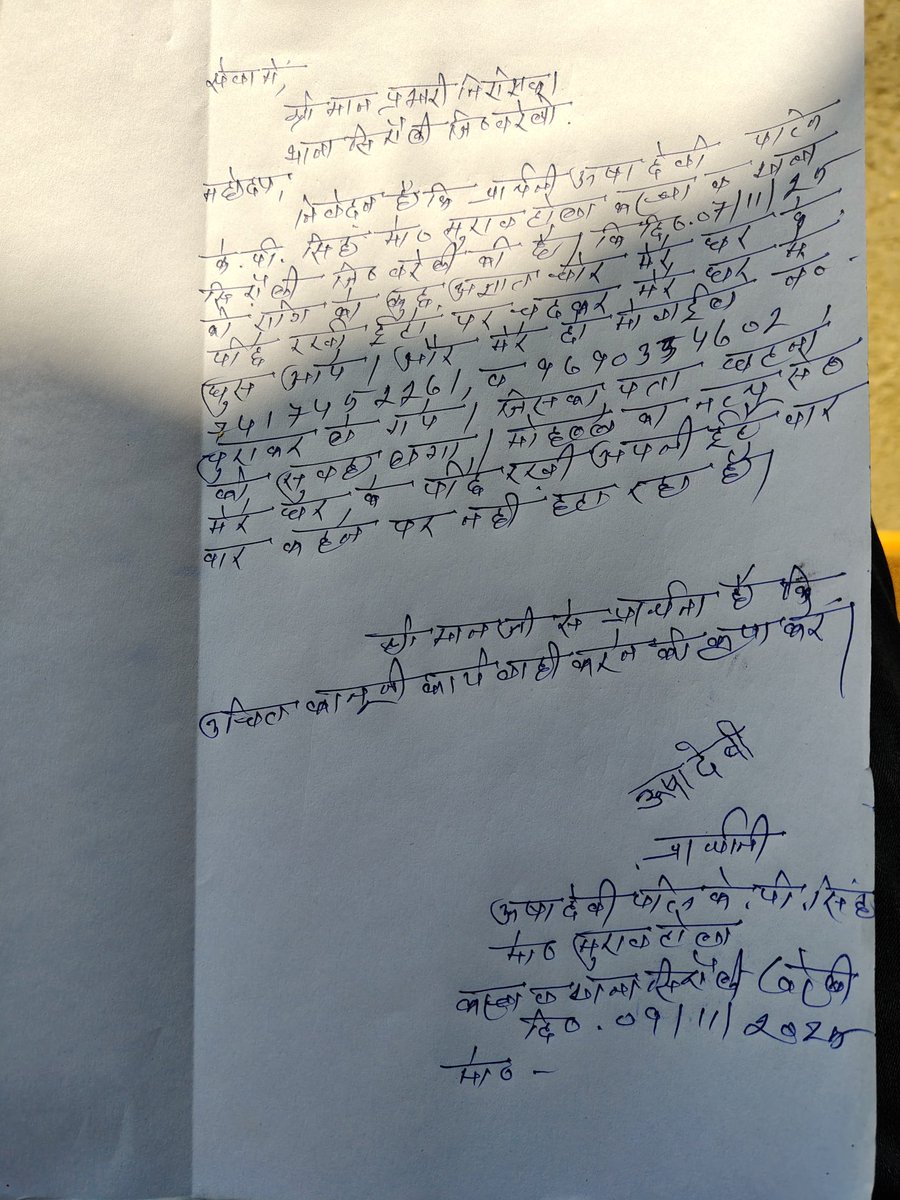 सेवा में,
श्री मान प्रभारी निरीक्षक।
थाना सिरौली जि० बरेली.
महोदय,
निवेदन है कि प्रार्थनी ऊषा देवी पत्नि
के.पी. सिंह मो० मुराव टोला कस्बा व थाना
सिरौली जि० बरेली की है। कि दि०.07/11/25
की रात्रि को कुछ अज्ञात चोर मेरे घर के
पीछे रखी ईटो पर चढकर मेरे घर में
घुस आये। और मेरे दो मोबाईल न०.
7417452261, व 9690334602
चुराकर ले गये। जिसका पता घटना
की सुबह लगा। मोहल्ले का
मेरे घर के पीछे रखी अपनी ईटे बार
बार कहने पर नही हटा रहा है।
श्री मान जी से प्रार्थना है कि
उचित कानूनी कार्यवाही करने की कृपा करें।
ऊषा देवी
प्रार्थनी
ऊषा देवी पत्नि के.पी. सिंह
मो० मुराव टोला
कस्बा व थाना सिरौली (बरेली
दि०.09/11/2025
मो० -